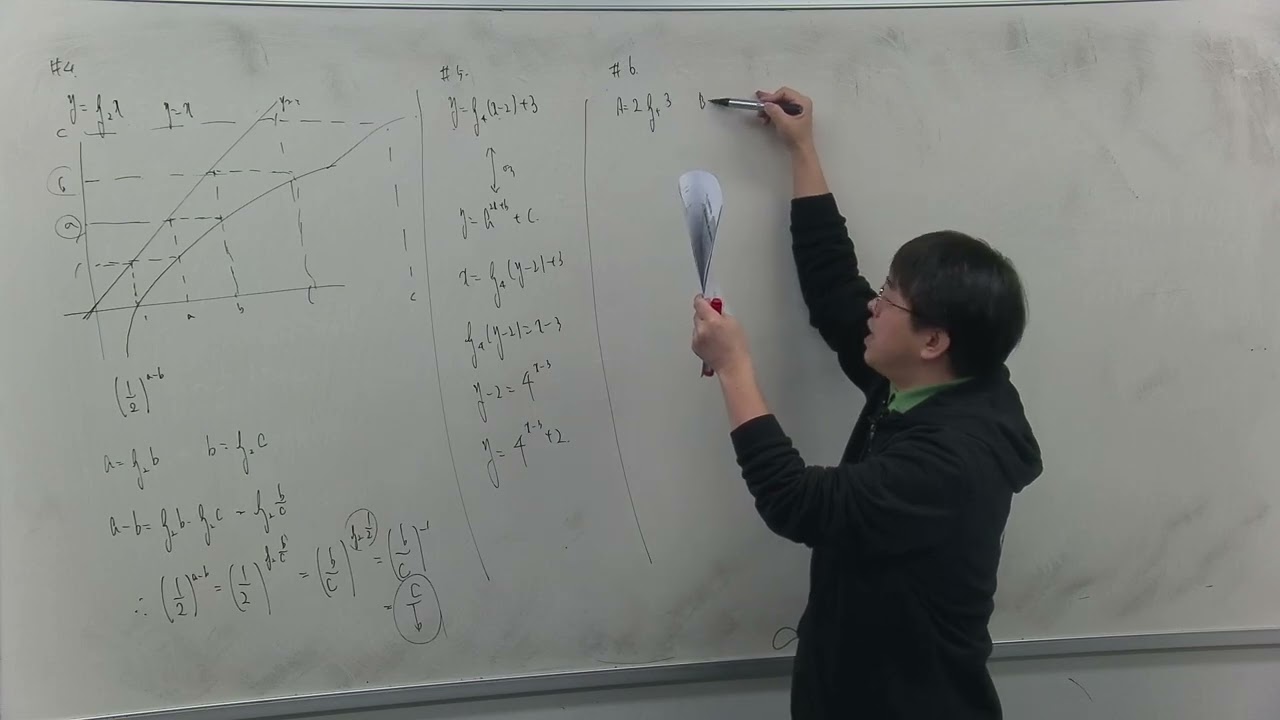 #4.
y = log₂x y = x
y = x
c
b
a
1
1 a b c c
(1/2)^(a-b)
a = log₂b b = log₂c
a-b = log₂b - log₂c = log₂ b/c
∴ (1/2)^(a-b) = (1/2)^(log₂ b/c) = (b/c)^(log₂ 1/2) = (b/c)^(-1)
= c/b
#5.
y = log₄(x-2)+3
y = a^(x+b) + c.
x = log₄(y-2)+3
log₄(y-2) = x-3
y-2 = 4^(x-3)
y = 4^(x-3) + 2.
#6.